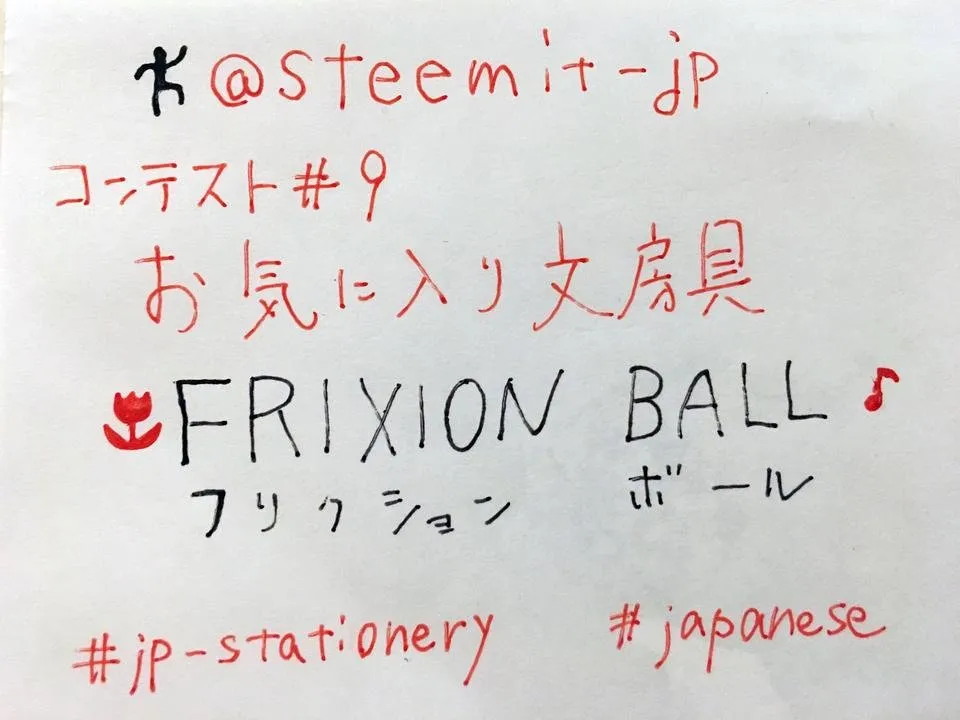 @steemit-jp
コンテスト#9
お気に入り文房具
FRIXION BALL
フリクション ボール
#jp-stationery #japanese